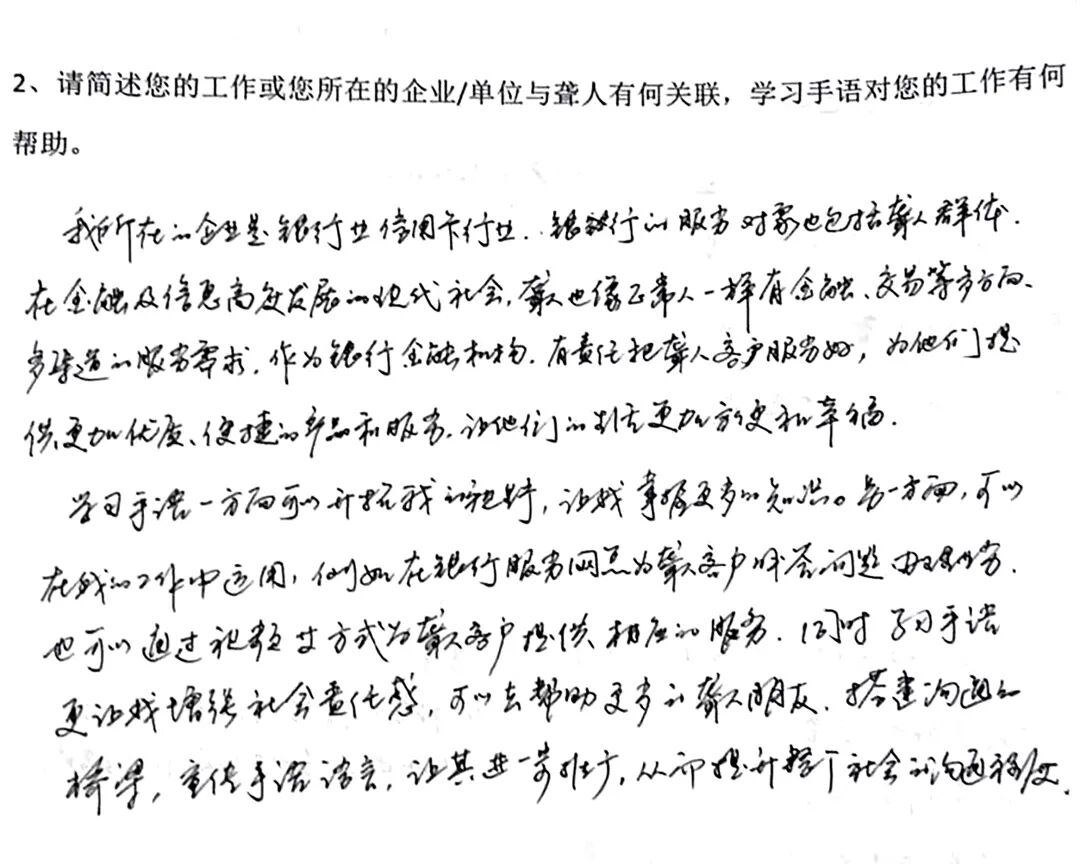 2、请简述您的工作或您所在的企业/单位与聋人有何关联，学习手语对您的工作有何
帮助。
我所在的企业是银行业信用卡行业.银行的服务对象也包括聋人群体.
在金融及信息高速发展的现代社会,聋人也像正常人一样有金融、交易等多方面、
多渠道的服务需求.作为银行金融机构.有责任把聋人客户服务好，为他们提
供更加优质、便捷的产品和服务.让他们的生活更加方便和幸福.
学习手语一方面可以开拓我的视野，让我掌握更多的知识。另一方面,可以
在我的工作中运用，例如在银行服务网点为聋人客户解答问题办理业务.
也可以通过视频方式为聋人客户提供相应的服务.同时学习手语
更让我增强社会责任感，可以去帮助更多的聋人朋友.搭建沟通的
桥梁，宣传手语语言,让其进一步推广,从而提升整个社会的沟通程度.